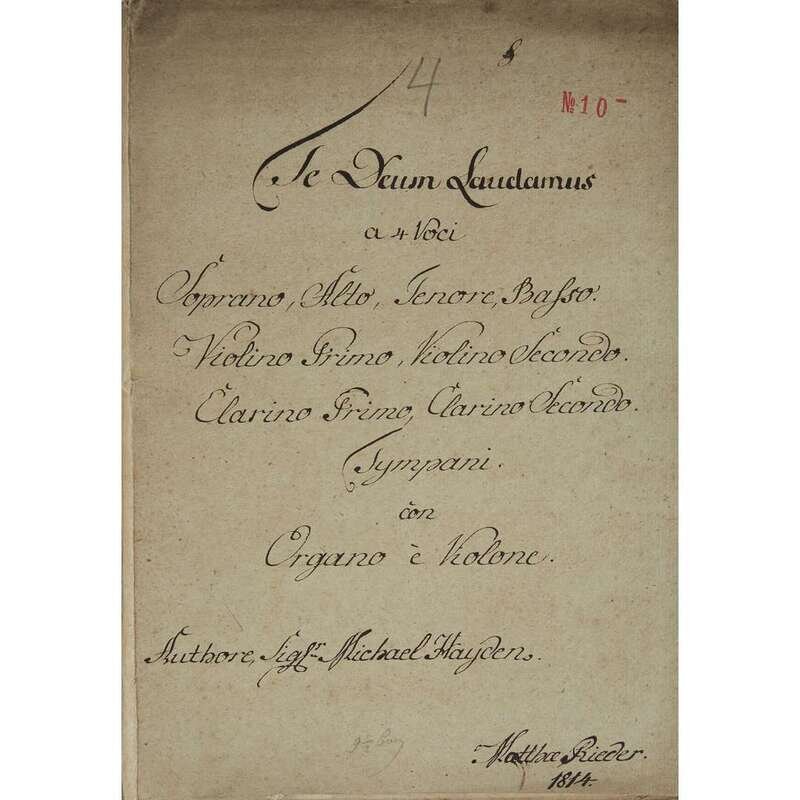 4
№ 10 -
Te Deum Laudamus
a 4 Voci
Soprano, Alto, Tenore, Basso.
Violino Primo, Violino Secondo.
Clarino Primo, Clarino Secondo.
Tympani.
con
Organo è Violone.
Authore, Sigʳ Michael Hayden.
Matthæ Rieder.
1814.